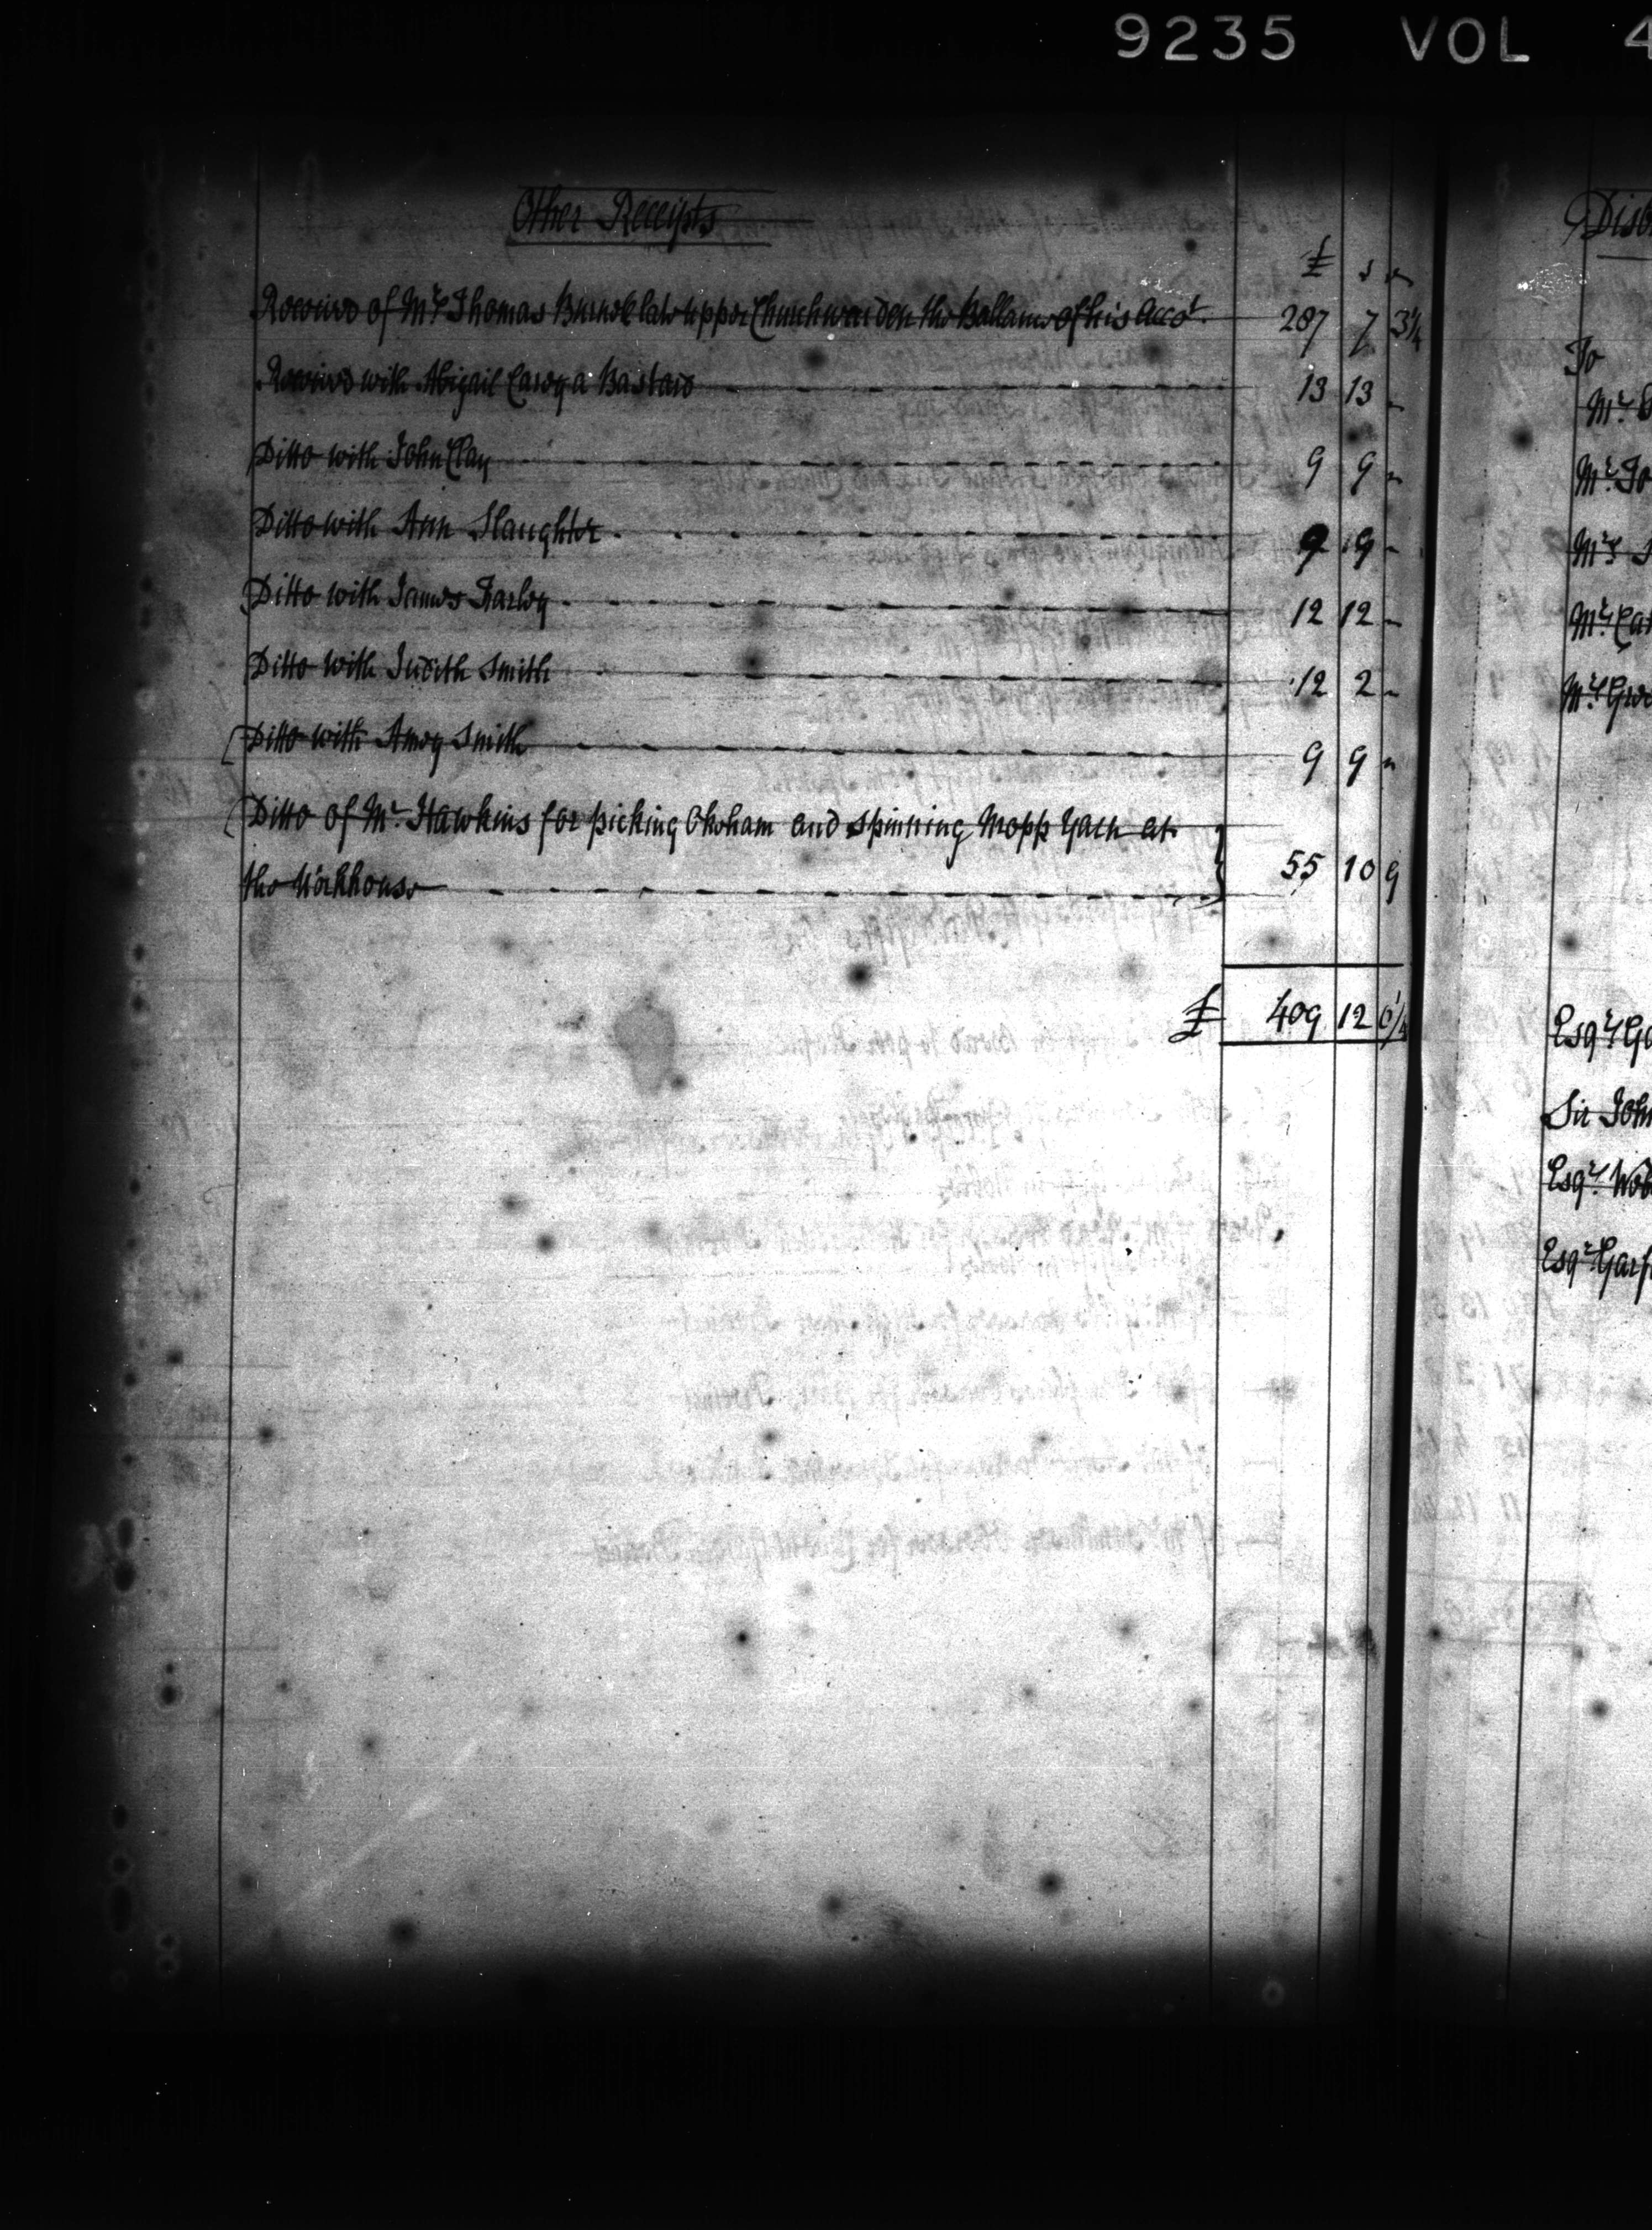 9235 VOL 4
Other Receipts
£ s
Received of Mr. Thomas late upper Churchwarden the Ballance of his Acco.t 287 7 3¼
Received with Abigail Casey a Bastard 13 13 -
Ditto with John Clay 9 9 -
Ditto with Ann Slaughter 9 9 -
Ditto with James Farley 12 12 -
Ditto with Judith Smith 12 2 -
Ditto with Amey Smith 9 9 -
Ditto of Mr. Hawkins for picking Okeham and Spinning Mopp Yarn at
the Workhouse 55 10 9
£ 409 12 0¼
Disb
To
Mr.
Mr. Jo
Mr.
Mr. Cat
Mr.
Esqr. Go
Sir John
Esqr.
Esqr. Garf